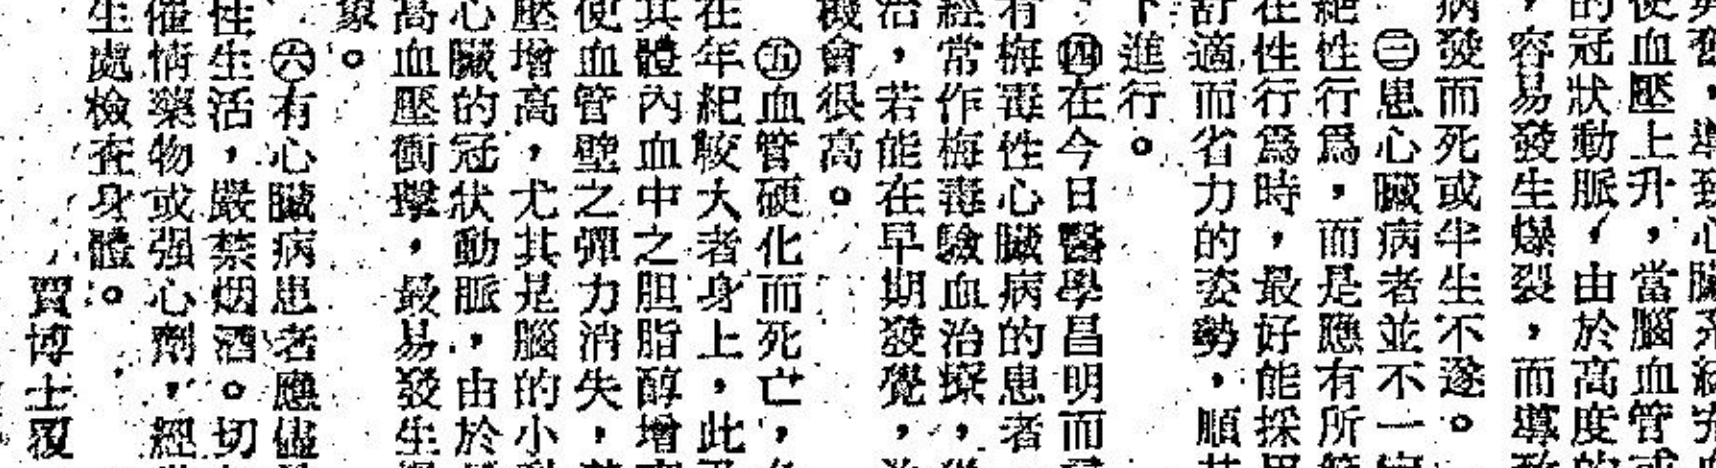 ，導致心臟
使血壓上升，當腦血管或
的冠狀動脈，由於高度的
，容易發生爆裂，而導致
病發而死或半生不遂。
㊂患心臟病者並不一定
絕性行爲，而是應有所
在性行爲時，最好能採用
舒適而省力的姿勢，順其
下進行。
㊃在今日醫學昌明而
有梅毒性心臟病的患者
經常作梅毒驗血治療，
治，若能在早期發覺，
機會很高。
㊄血管硬化而死亡，
在年紀較大者身上，此
其體內血中之胆脂醇增
使血管壁之彈力消失，
壓增高，尤其是腦的小
心臟的冠狀動脈，由於
高血壓衝擊，最易發生
象。
㊅有心臟病患者應儘
性生活，嚴禁烟酒。切
催情藥物或强心劑，經
生處檢查身體。
賈博士覆